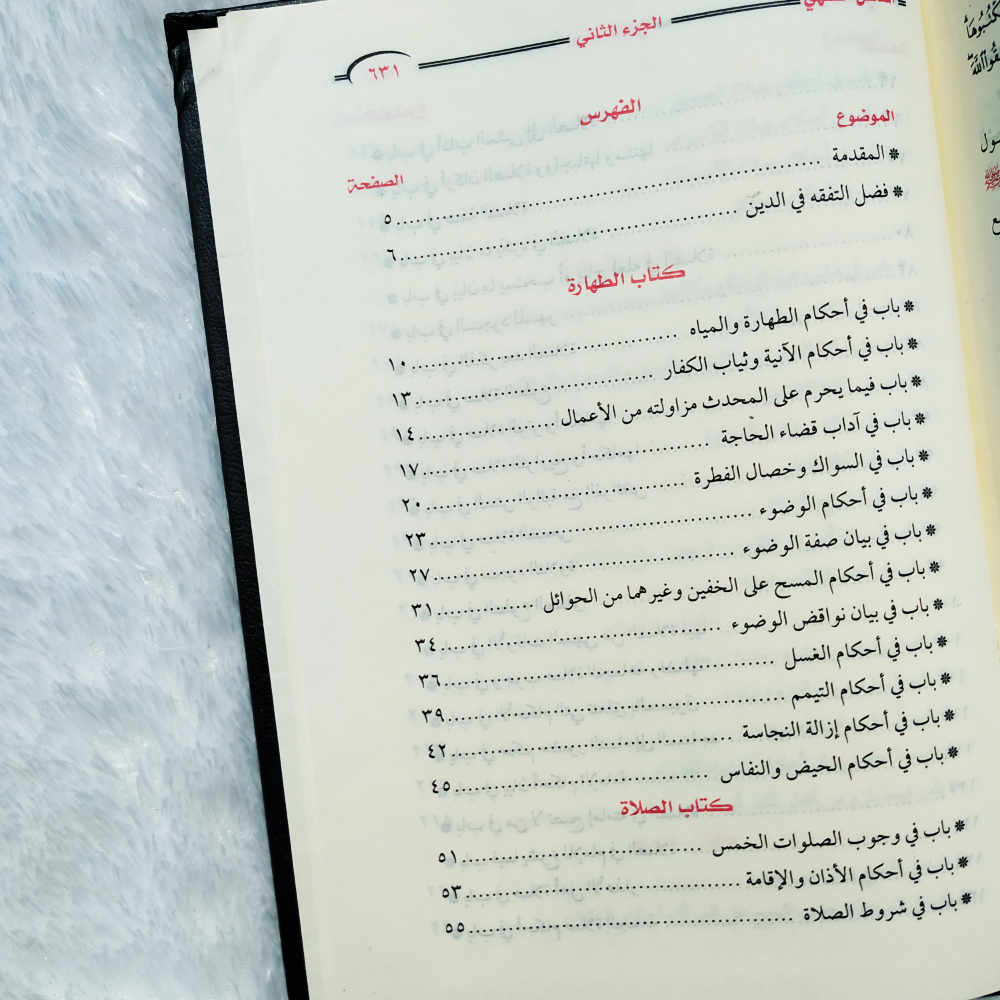 الجزء الثاني
٦٣١
الفهرس
الموضوع
الصفحة
❋ المقدمة ........ ٥
❋ فضل التفقه في الدين ........ ٦
كتاب الطهارة
❋ باب في أحكام الطهارة والمياه ........ ١٠
❋ باب في أحكام الآنية وثياب الكفار ........ ١٣
❋ باب فيما يحرم على المحدث مزاولته من الأعمال ........ ١٤
❋ باب في آداب قضاء الحاجة ........ ١٧
❋ باب في السواك وخصال الفطرة ........ ٢٠
❋ باب في أحكام الوضوء ........ ٢٣
❋ باب في بيان صفة الوضوء ........ ٢٧
❋ باب في أحكام المسح على الخفين وغيرهما من الحوائل ........ ٣١
❋ باب في بيان نواقض الوضوء ........ ٣٤
❋ باب في أحكام الغسل ........ ٣٦
❋ باب في أحكام التيمم ........ ٣٩
❋ باب في أحكام إزالة النجاسة ........ ٤٢
❋ باب في أحكام الحيض والنفاس ........ ٤٥
كتاب الصلاة
❋ باب في وجوب الصلوات الخمس ........ ٥١
❋ باب في أحكام الأذان والإقامة ........ ٥٣
❋ باب في شروط الصلاة ........ ٥٥